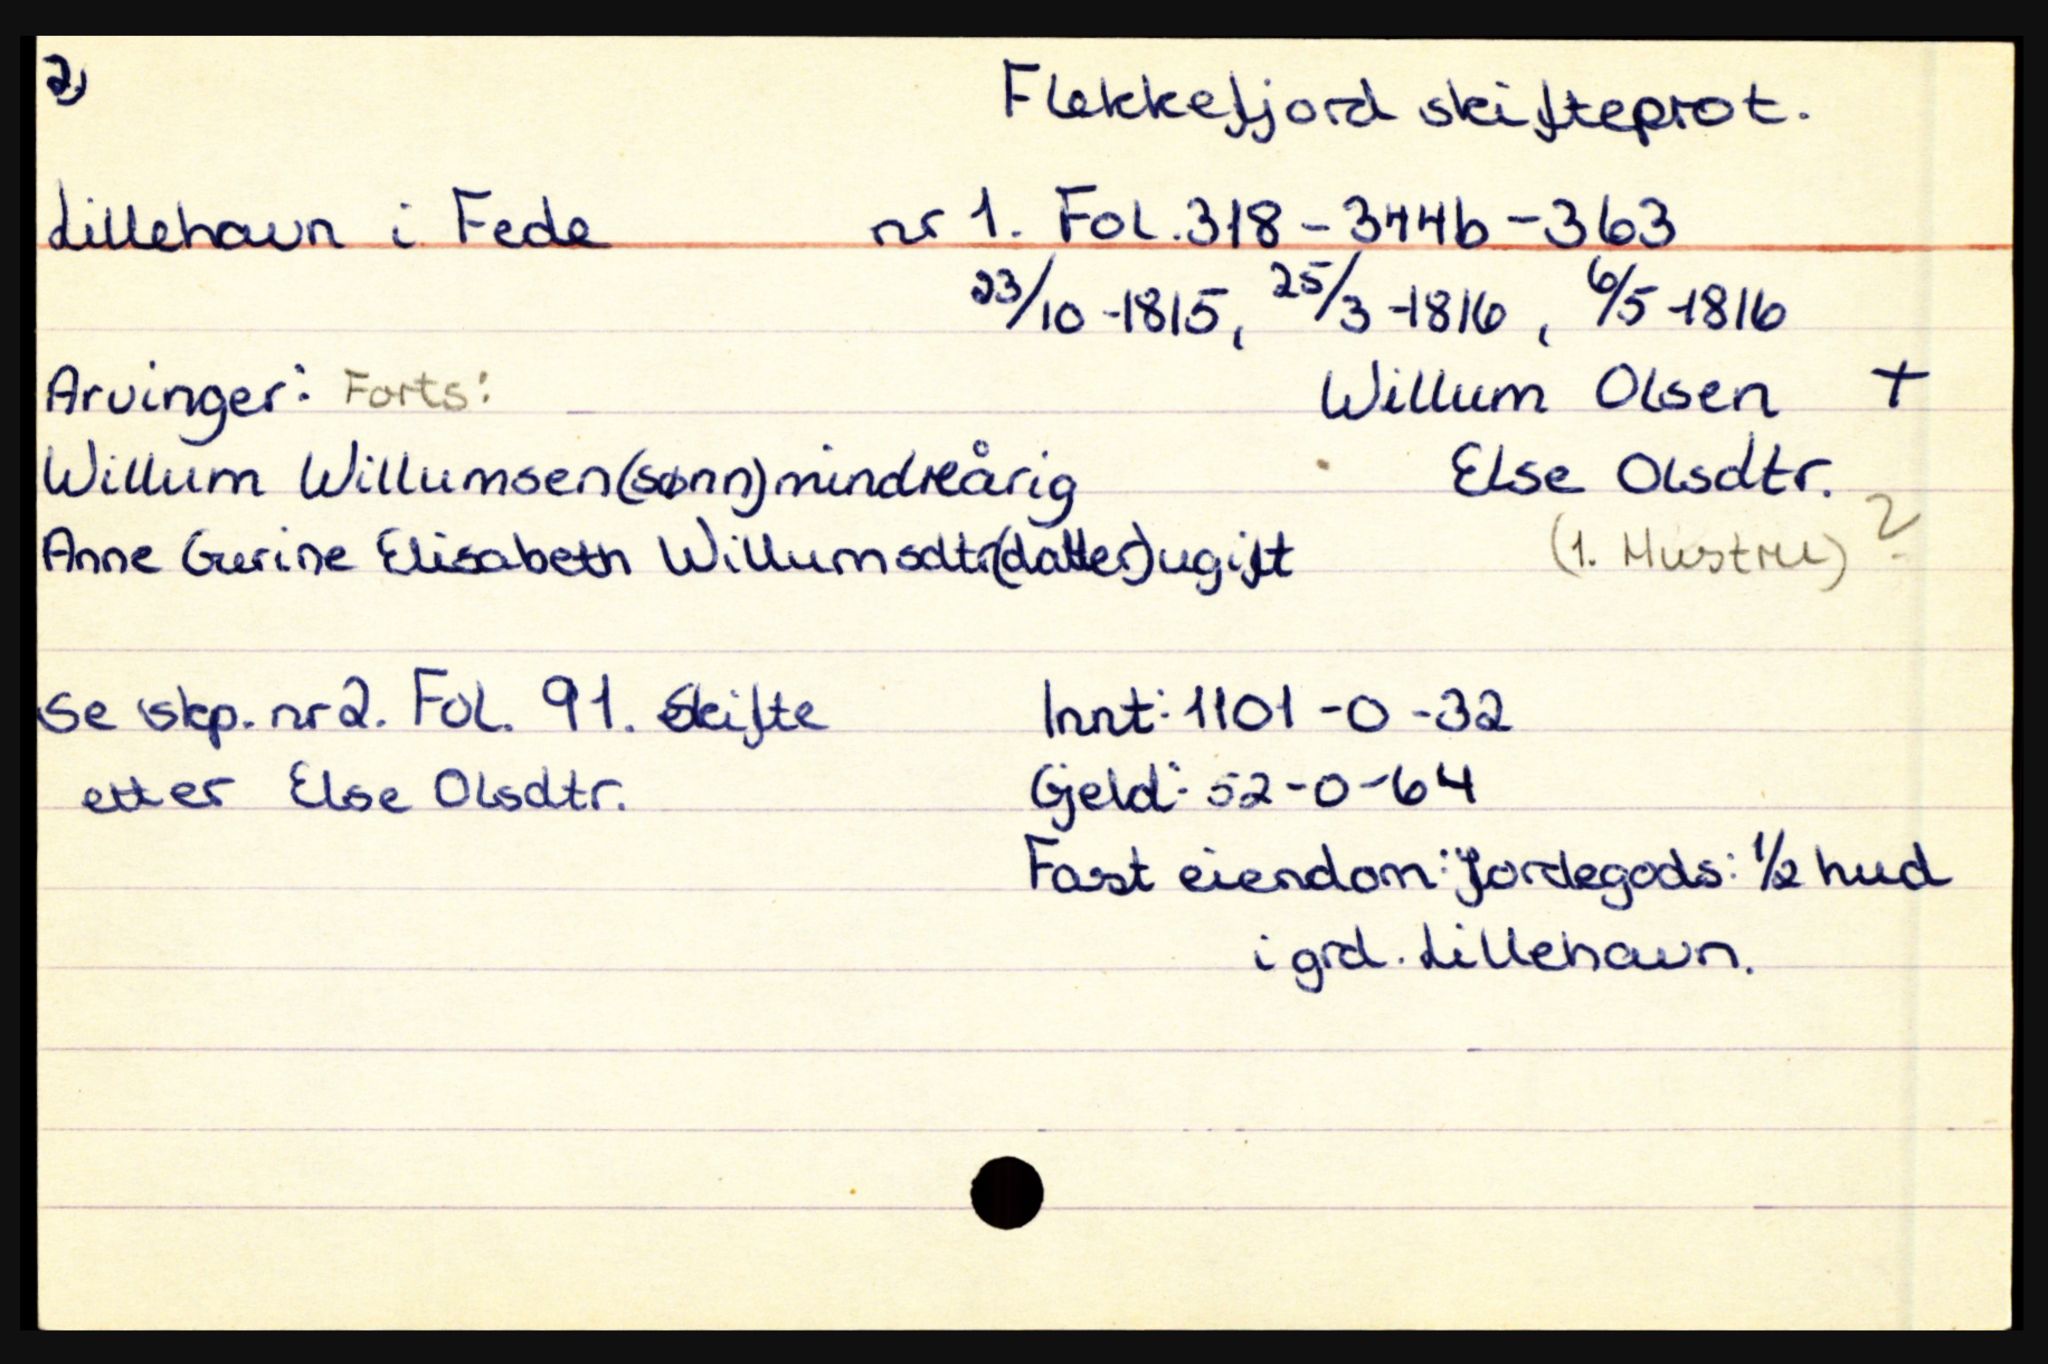 2)
Flekkefjord skifteprot.
Lillehavn i Fede nr 1. Fol. 318 - 344b - 363
23/10 - 1815, 25/3 - 1816, 6/5 - 1816
Arvinger: Forts: Willum Olsen +
Willum Willumsen (sønn) mindreårig Else Olsdtr.
Anne Gurine Elisabeth Willumsdtr (datter) ugift (1. Hustru) ?
Se skp. nr 2. Fol. 91. Skifte Innt: 1101 - 0 - 32
etter Else Olsdtr. Gjeld: 52 - 0 - 64
Fast eiendom: Jordegods: 1/2 hud
i grd. Lillehavn.